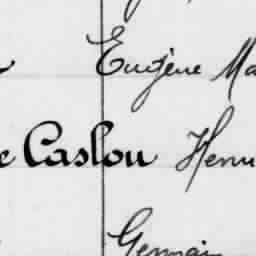 Eugène Ma
e Caslou Henri
Germain